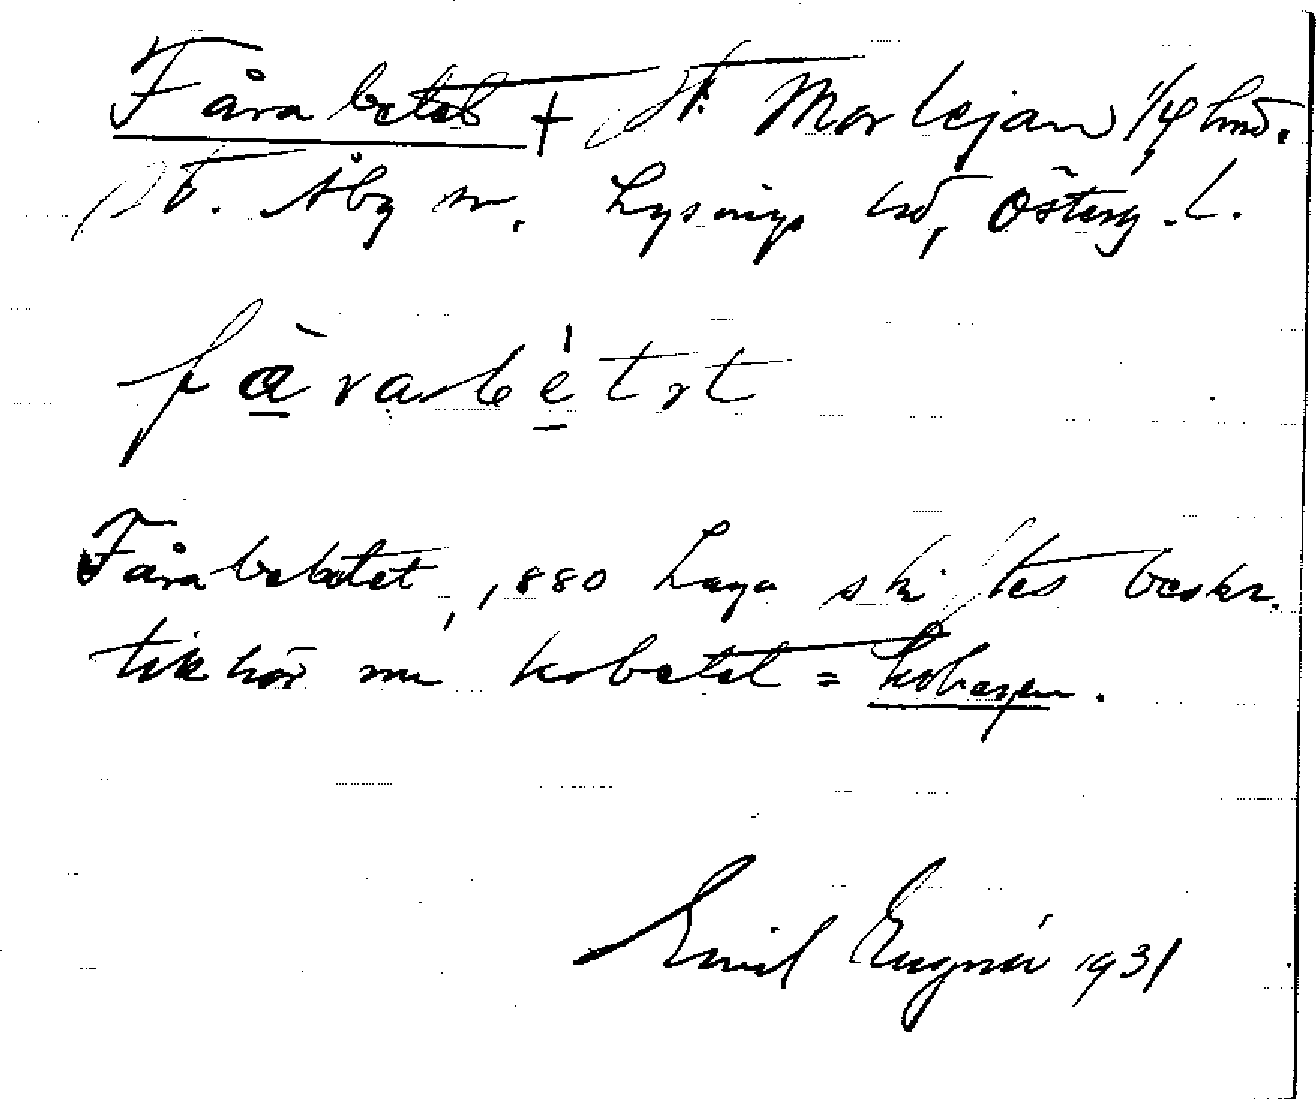 Fårabetet + St. Morlejan 1/4 hmd.
St. Åby sn. Lysings hd, Österg. L.
fåravbetət
Fårabetet, 1880 Laga skiftes beskr.
tillhör nu kobetet = kohagen.
Emil Engnér 1931